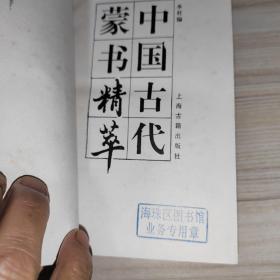 本社编
中国古代
蒙书精萃
上海古籍出版社
海珠区图书馆
业务专用章